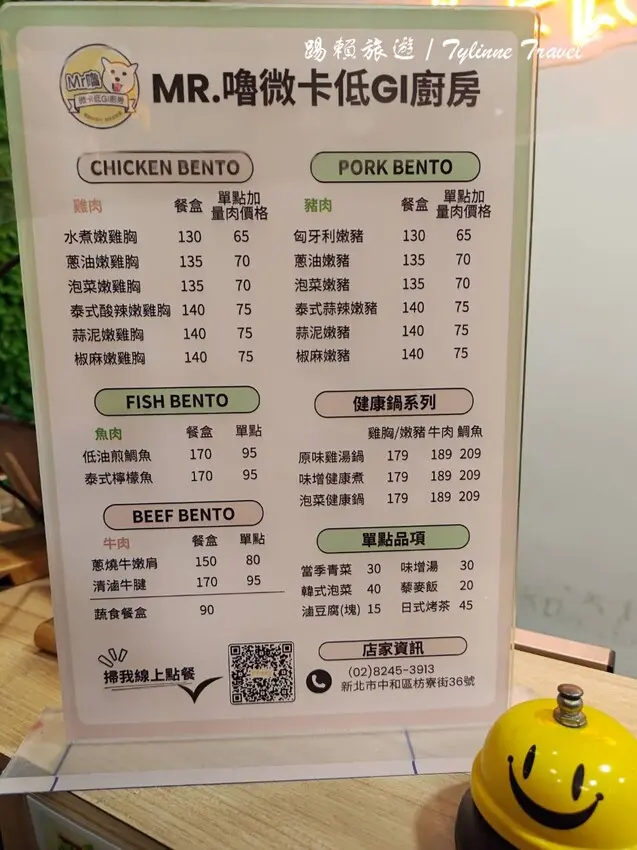 踢賴旅遊 / Tylinne Travel
Mr嚕
微卡低GI廚房
MR.嚕微卡低GI廚房
CHICKEN BENTO
雞肉 餐盒 單點加量肉價格
水煮嫩雞胸 130 65
蔥油嫩雞胸 135 70
泡菜嫩雞胸 135 70
泰式酸辣嫩雞胸 140 75
蒜泥嫩雞胸 140 75
椒麻嫩雞胸 140 75
PORK BENTO
豬肉 餐盒 單點加量肉價格
匈牙利嫩豬 130 65
蔥油嫩豬 135 70
泡菜嫩豬 135 70
泰式蒜辣嫩豬 140 75
蒜泥嫩豬 140 75
椒麻嫩豬 140 75
FISH BENTO
魚肉 餐盒 單點
低油煎鯛魚 170 95
泰式檸檬魚 170 95
BEEF BENTO
牛肉 餐盒 單點
蔥燒牛嫩肩 150 80
清滷牛腱 170 95
蔬食餐盒 90
健康鍋系列
雞胸/嫩豬 牛肉 鯛魚
原味雞湯鍋 179 189 209
味增健康煮 179 189 209
泡菜健康鍋 179 189 209
單點品項
當季青菜 30 味增湯 30
韓式泡菜 40 藜麥飯 20
滷豆腐(塊) 15 日式烤茶 45
掃我線上點餐
店家資訊
(02)8245-3913
新北市中和區枋寮街36號